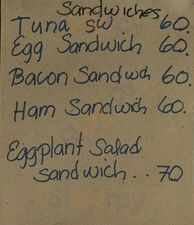 Sandwiches
Tuna sw 60.
Egg Sandwich 60.
Bacon Sandwch 60.
Ham Sandwich 60.
Eggplant Salad
Sandwich . . 70